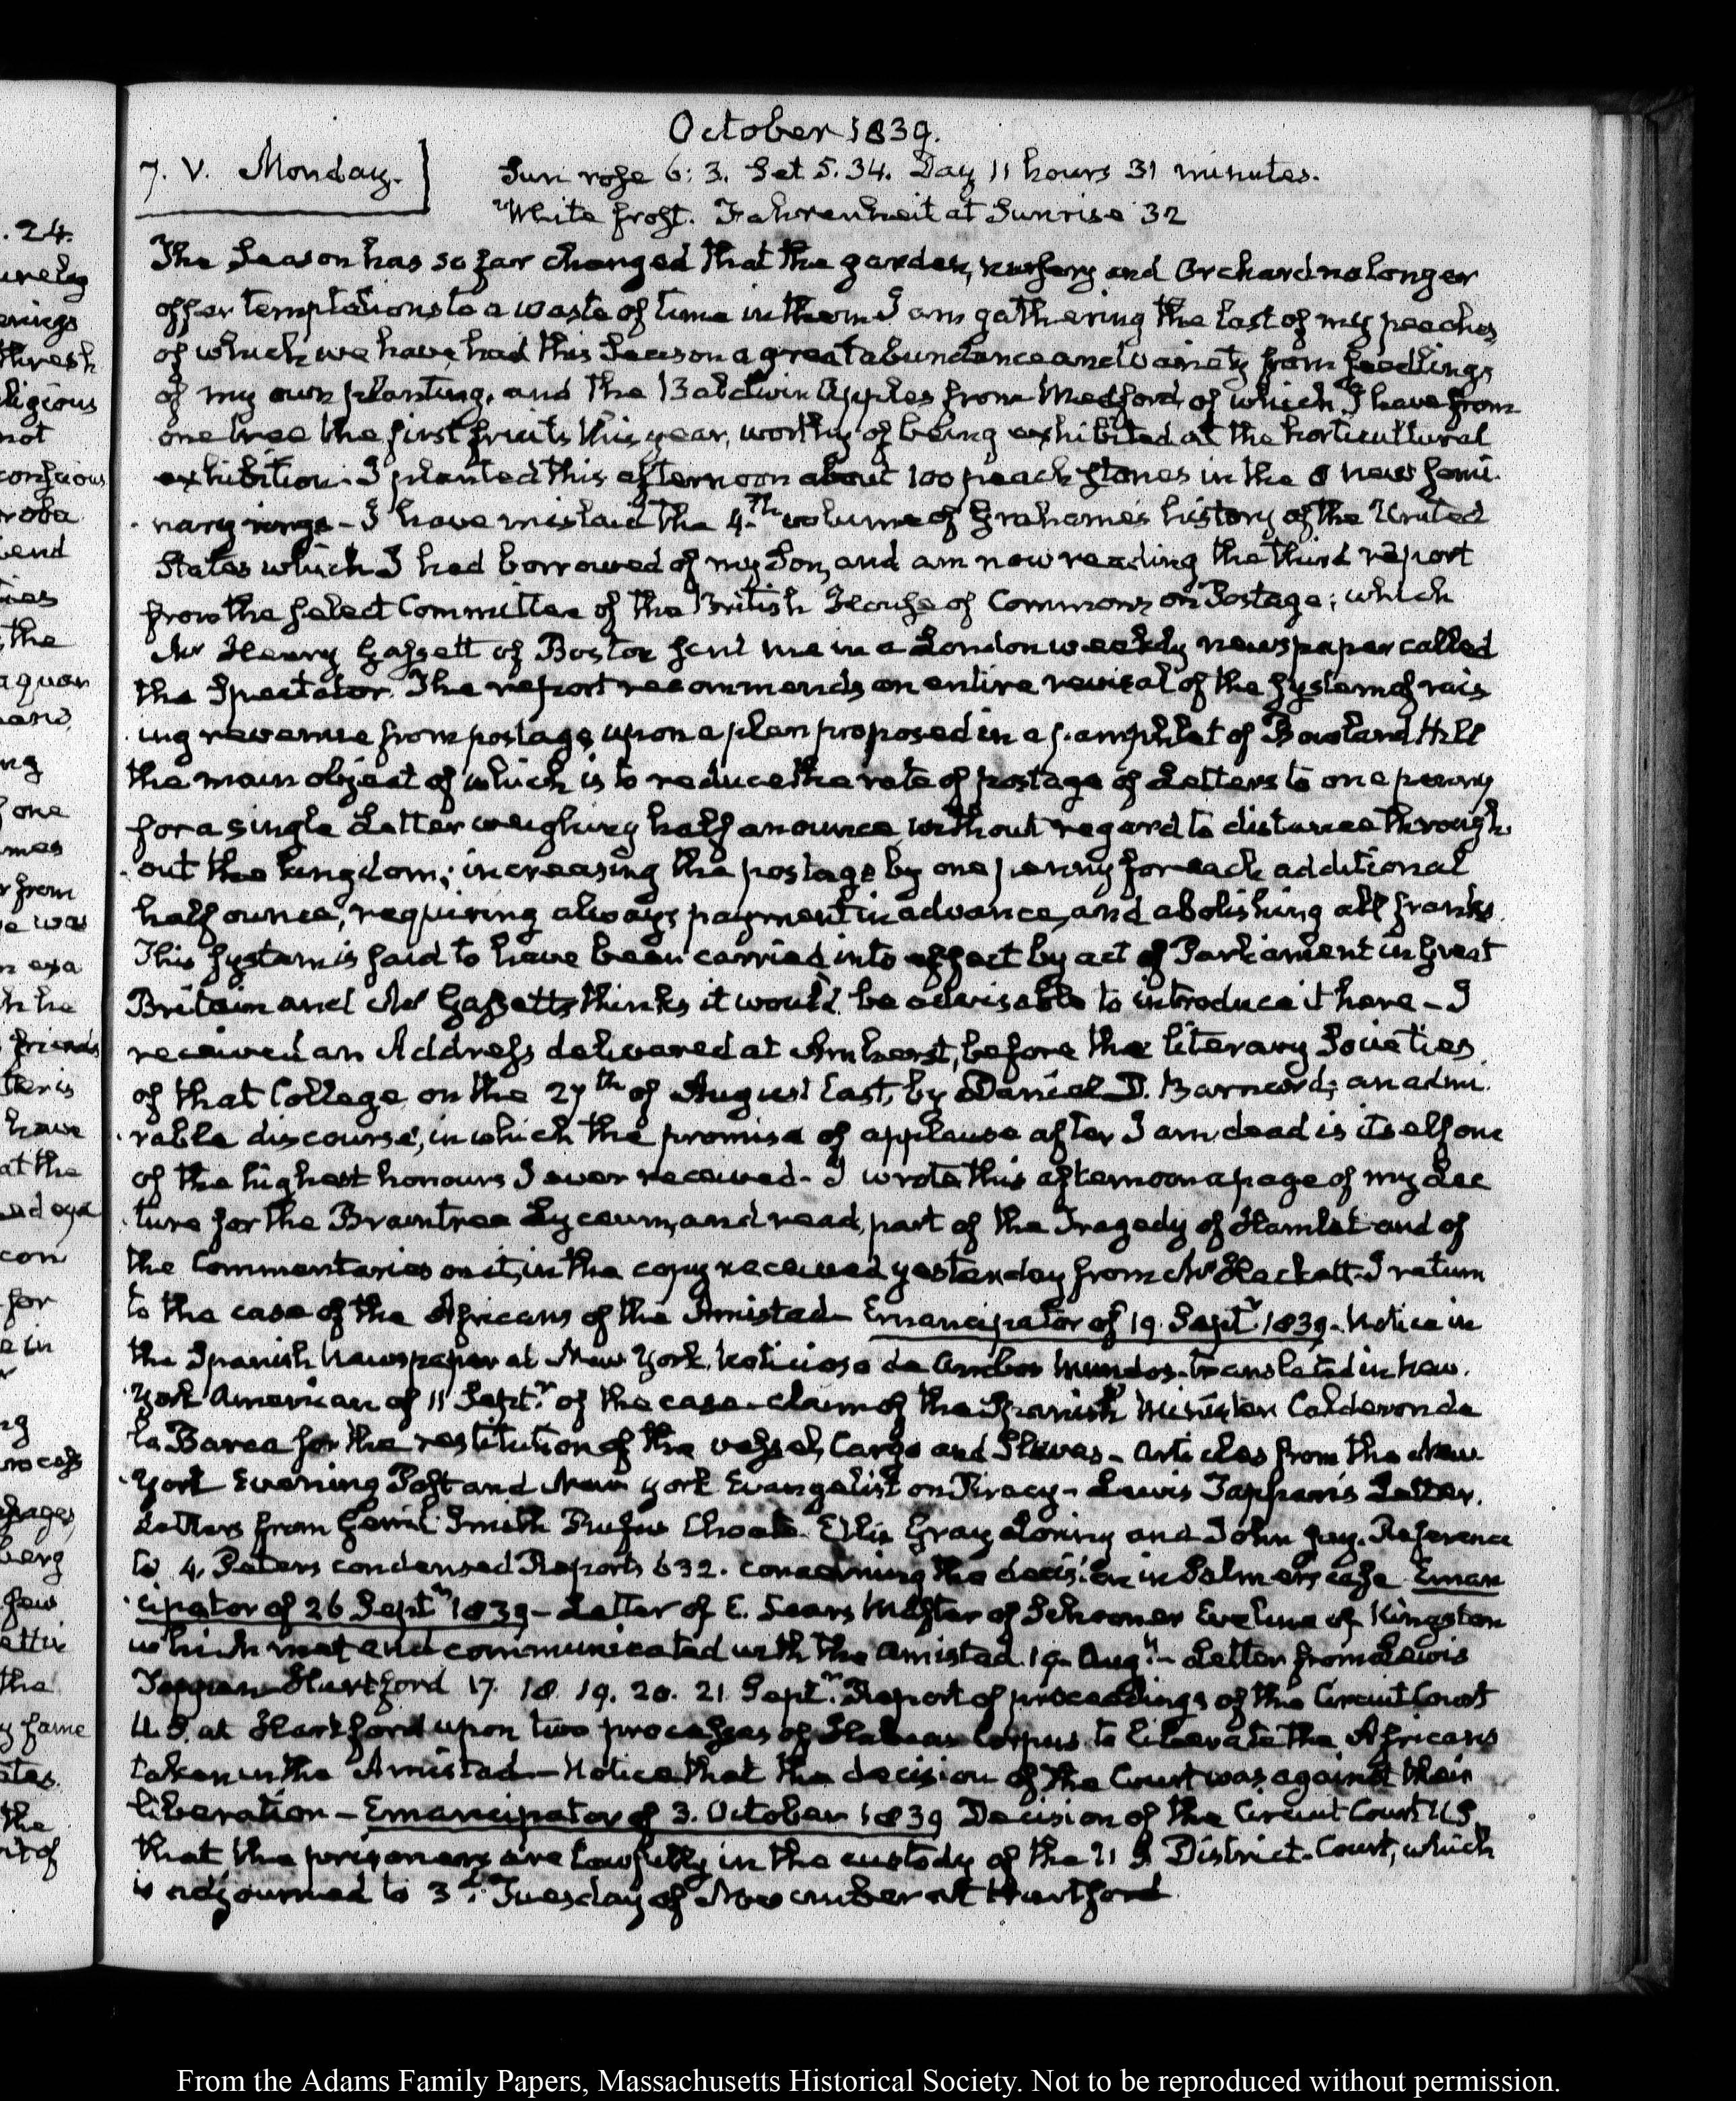 October 1839.
7. V. Monday.
Sun rose 6: 3. Set 5. 34. Day 11 hours 31 minutes.
White frost. Fahrenheit at Sunrise 32
The Season has so far changed that the garden, nursery and Orchard no longer
offer temptations to a waste of time in them I am gathering the last of my peaches,
of which we have had this Season a great abundance and variety from seedlings
of my own planting, and the Baldwin Apples from Medford, of which I have from
one tree the first fruits this year, worthy of being exhibited at the horticultural
exhibition. I planted this afternoon about 100 peach stones in the 8 new semi-
nary rings - I have mislaid the 4.th volume of Grahame's history of the United
States which I had borrowed of my Son, and am now reading the third report
from the select Committee of the British House of Commons on Postage; which
Mr Henry Gassett of Boston sent me in a London weekly newspaper called
the Spectator. The report recommends an entire revisal of the system of rais
ing revenue from postage, upon a plan proposed in a pamphlet of Rowland Hill
the main object of which is to reduce the rate of postage of Letters to one penny
for a single Letter weighing half an ounce, without regard to distance through-
out the kingdom; increasing the postage by one penny for each additional
half ounce, requiring always payment in advance, and abolishing all franks.
This system is said to have been carried into effect by act of Parliament in Great
Britain and Mr Gassett thinks it would be advisable to introduce it here - I
received an Address delivered at Amherst, before the literary Societies
of that College, on the 27th of August last, by Daniel D. Barnard; an admi-
rable discourse, in which the promise of applause after I am dead is itself one
of the highest honours I ever received - I wrote this afternoon a page of my Lec
ture for the Braintree Lyceum, and read, part of the Tragedy of Hamlet and of
the Commentaries on it, in the copy received yesterday from Mr Hackett. I return
to the case of the Africans of the Amistad - Emancipator of 19. Septr 1839 - Notice in
the Spanish Newspaper at New York, Noticioso de Ambos Mundos - translated in New-
York American of 11 Septr of the case - claim of the Spanish Minister Calderon de
la Barca for the restitution of the vessel, Cargo and Slaves - Articles from the New-
York Evening Post and New York Evangelist on Piracy - Lewis Tappan's Letter.
Letters from Gerrit Smith Rufus Choate. Ellis Gray Loring and John Jay. Reference
to 4. Peters condensed Reports 632. concerning the decision in Palmer's case Eman
cipator of 26 Septr 1839 - Letter of E. Sears Master of Schooner Eveline of Kingston
which met and communicated with the Amistad. 19. Augt - Letter from Lewis
Tappan - Hartford 17. 18. 19. 20. 21. Septr. Report of proceedings of the Circuit Court
U.S. at Hartford upon two processes of Habeas Corpus to liberate the Africans
taken in the Amistad - Notice that the decision of the Court was against their
liberation - Emancipator of 3. October 1839 Decision of the Circuit Court U.S.
that the prisoners are lawfully in the custody of the U S District-Court, which
is adjourned to 3d. Tuesday of November at Hartford
From the Adams Family Papers, Massachusetts Historical Society. Not to be reproduced without permission.